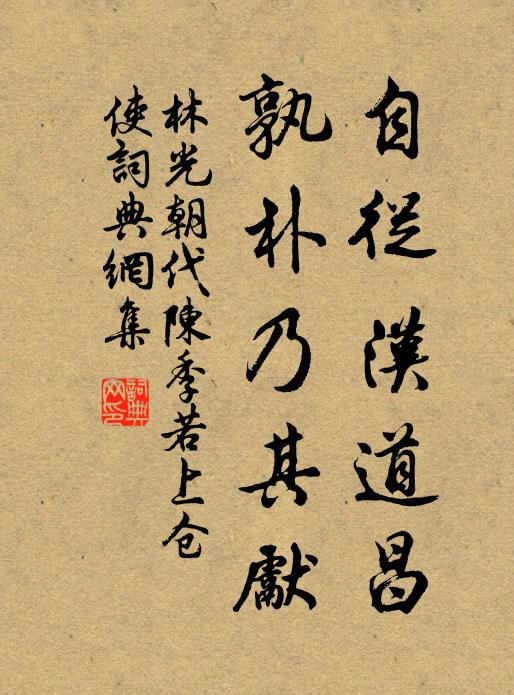 自從漢道昌
孰朴乃其獻
林光朝代陳季若上仓
使詞典網集
詞典
网印